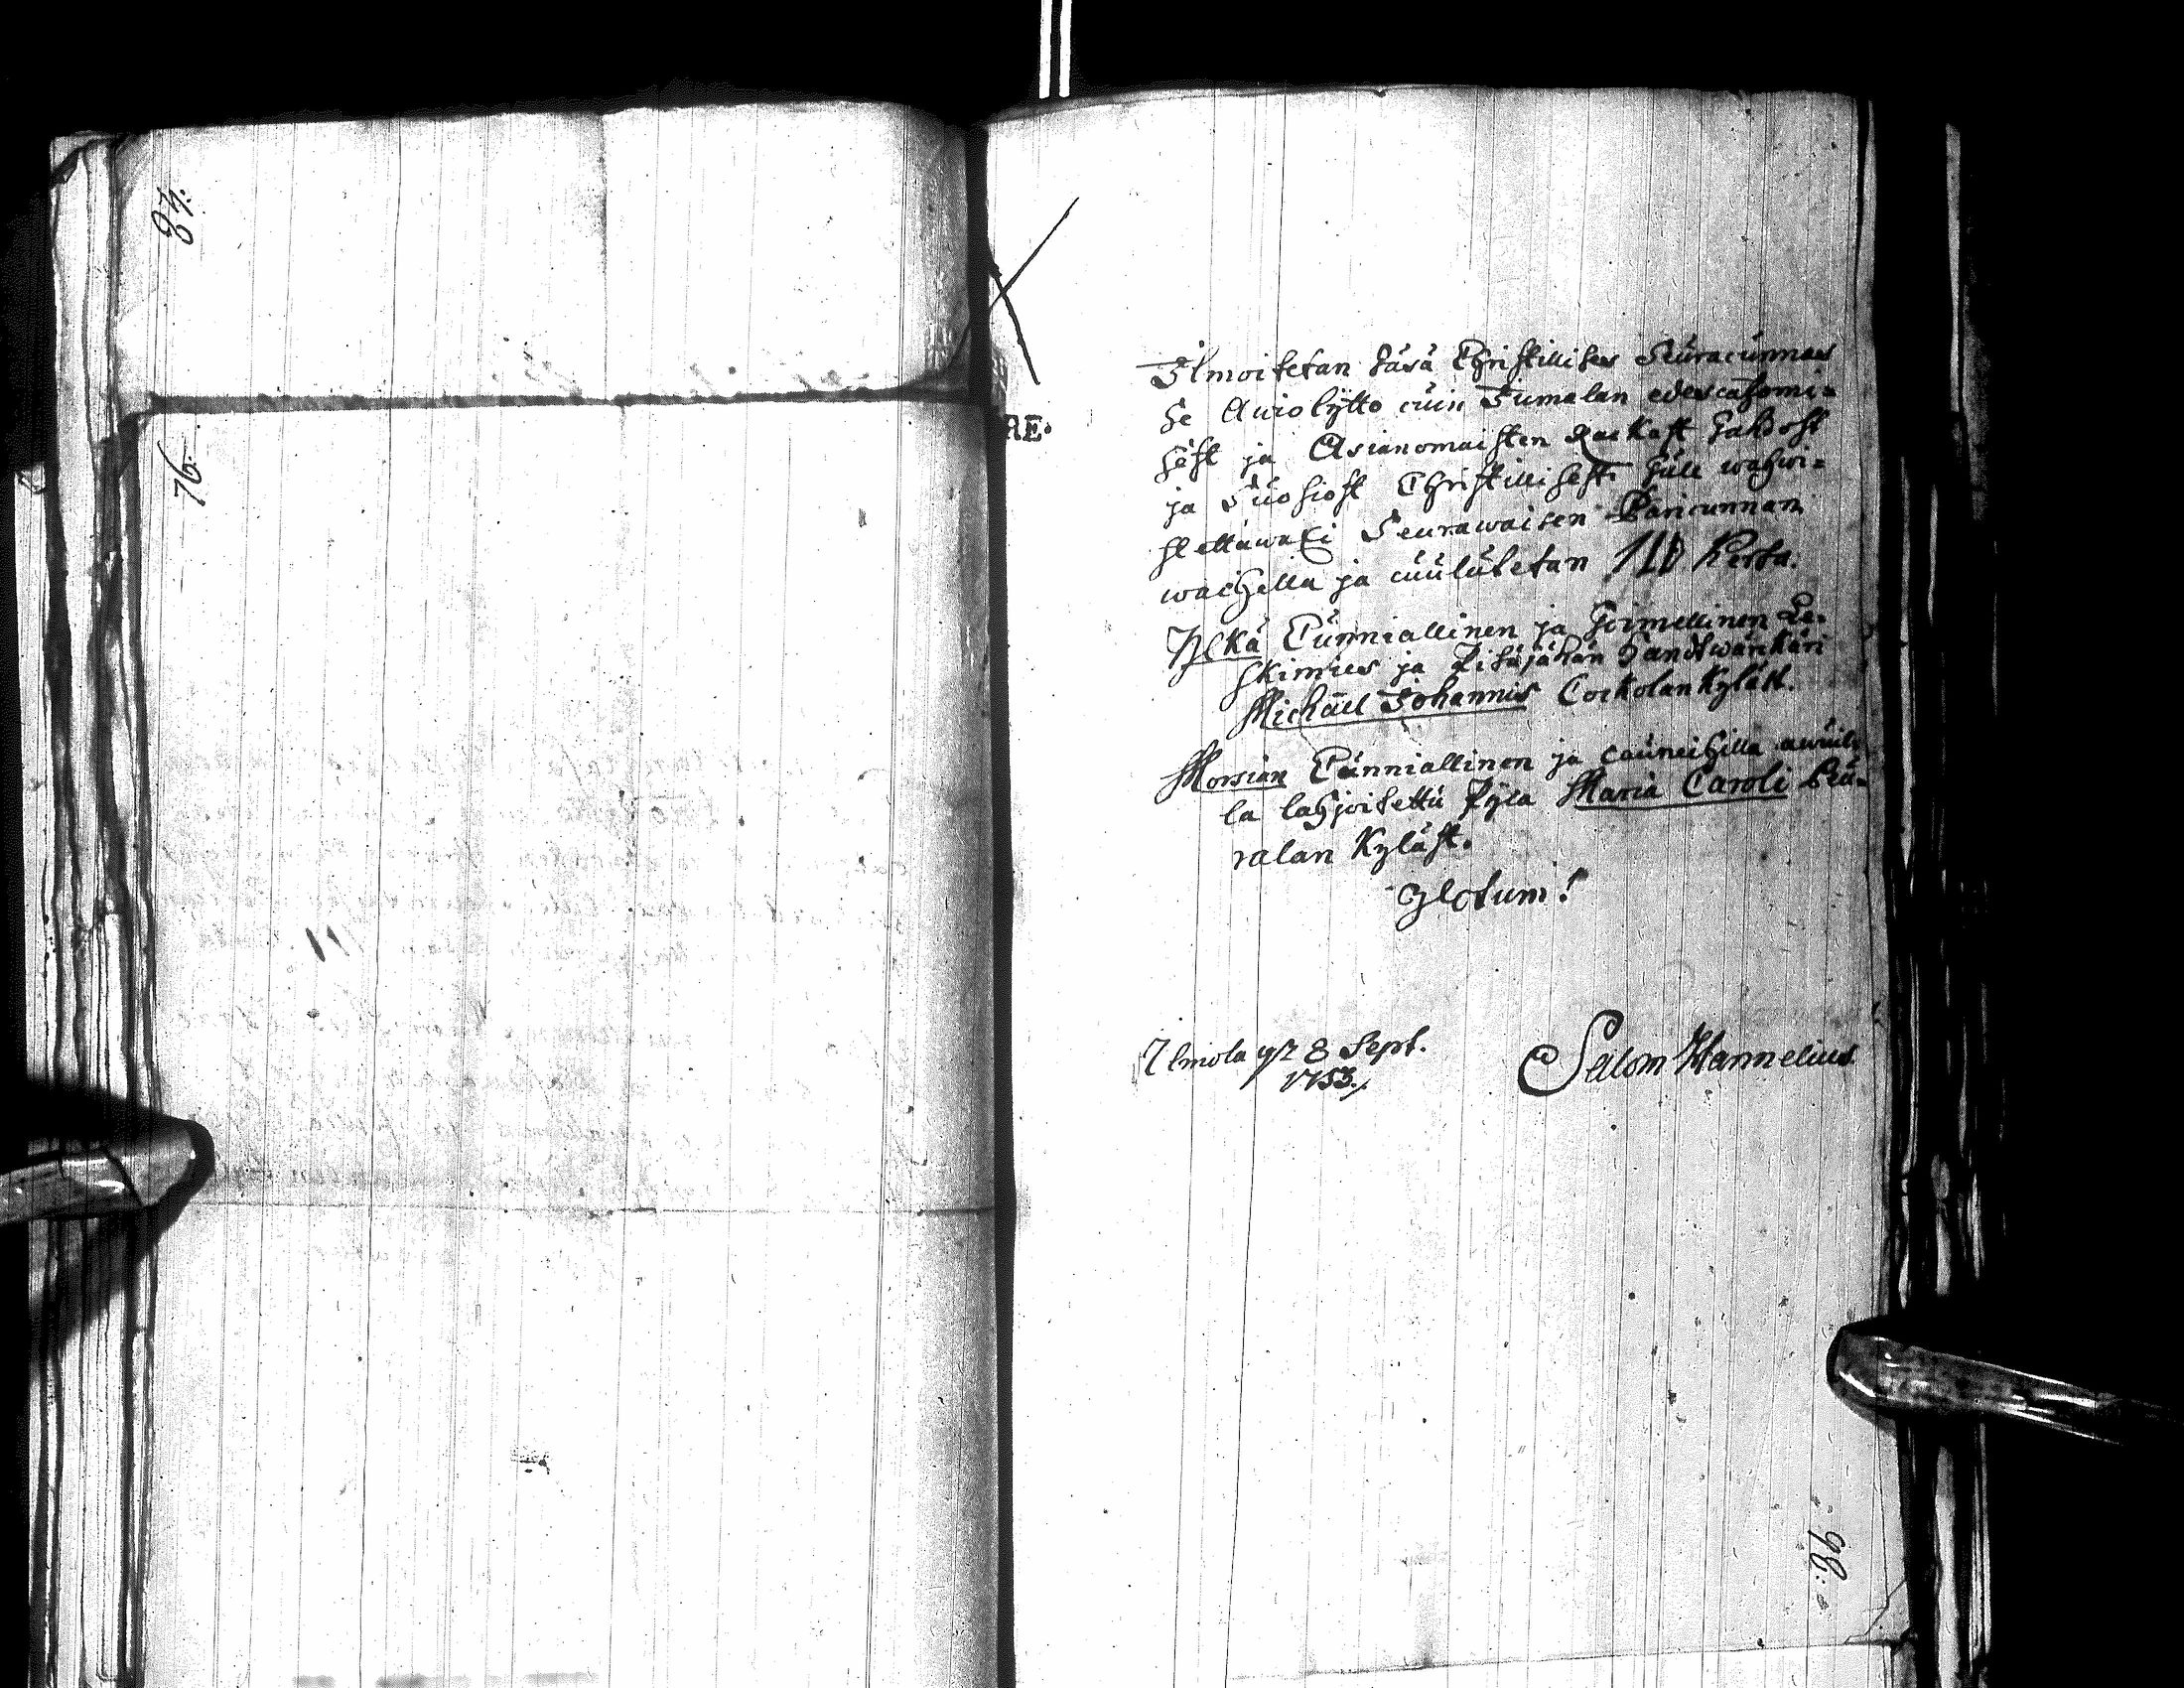 87.
76.
RE.
Ilmoitetan täsä Christillises Seuracunnas
se Awiolijtto cuin Jumalan edescatzomi=
sest ja Asianomaisten rackast tahdost
ja Suosiost Christillisest tule wahwi=
stettäwäxi Seurawaisen Paricunnan
waihella ja cuulutetan 1:ld Kerta.
Yljkä Cunniallinen ja Toimellinen Le=
skimies ja Pitäjähän Handtwärckäri
Michäel Johannis Corkolan Kyläst.
Morsian Cunniallinen ja cauneihilla awuil=
la lahjoitettu Pija Maria Caroli Piu=
ralan Kyläst.
Ilmola 8 Sept.
1753.
Salom Hannelius
98.